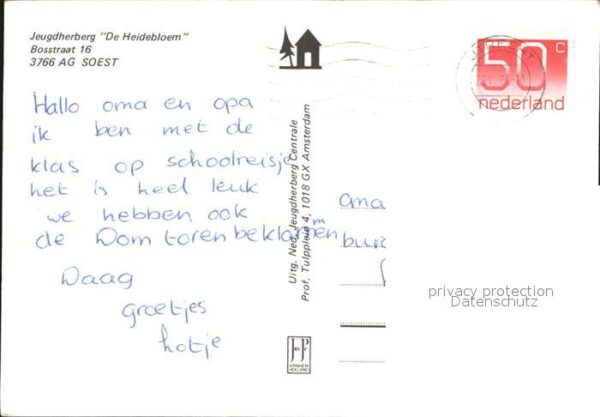 Jeugdherberg "De Heidebloem"
Bosstraat 16
3766 AG SOEST
Hallo oma en opa
ik ben met de
klas op schoolreisje
het is heel leuk
we hebben ook
de Domtoren beklommen
Daag
groetjes
hotje
Uitg. Ned. Jeugdherberg Centrale
Prof. Tulpplein 4, 1018 GX Amsterdam
50 c
nederland
oma
privacy protection
Datenschutz
ARNHEM
HOLLAND